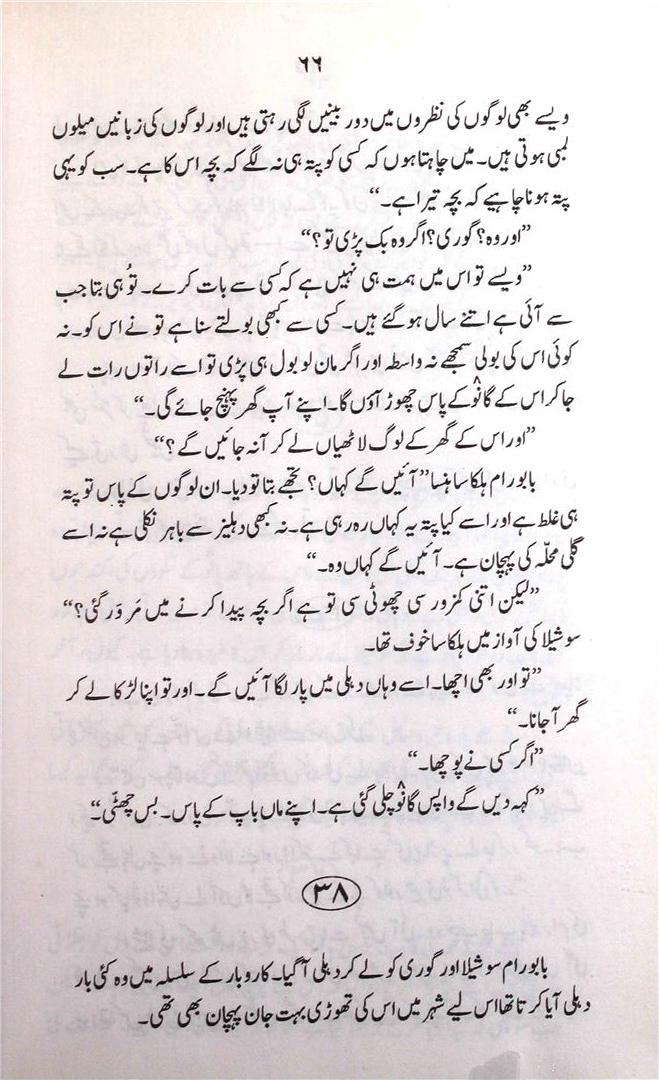 ۶۶
ویسے بھی لوگوں کی نظروں میں دور بینیں لگی رہتی ہیں اور لوگوں کی زبانیں میلوں
لمبی ہوتی ہیں۔ میں چاہتا ہوں کہ کسی کو پتہ ہی نہ لگے کہ بچہ اس کا ہے۔ سب کو یہی
پتہ ہونا چاہیے کہ بچہ تیرا ہے۔“
”اور وہ؟ گوری؟ اگر وہ بک پڑی تو؟“
”ویسے تو اس میں ہمت ہی نہیں ہے کہ کسی سے بات کرے۔ تُو ہی بتا جب
سے آئی ہے اتنے سال ہو گئے ہیں۔ کسی سے کبھی بولتے سنا ہے تو نے اس کو۔ نہ
کوئی اس کی بولی سمجھے نہ واسطہ اور اگر مان لو بول ہی پڑی تو اسے راتوں رات لے
جا کر اس کے گانؤ کے پاس چھوڑ آؤں گا۔ اپنے آپ گھر پہنچ جائے گی۔“
”اور اس کے گھر کے لوگ لاٹھیاں لے کر آ نہ جائیں گے؟“
بابو رام ہلکا سا ہنسا ”آئیں گے کہاں؟ تجھے بتا تو دیا۔ ان لوگوں کے پاس تو پتہ
ہی غلط ہے اور اسے کیا پتہ یہ کہاں رہ رہی ہے۔ نہ کبھی دہلیز سے باہر نکلی ہے نہ اسے
گلی محلّہ کی پہچان ہے۔ آئیں گے کہاں وہ۔“
”لیکن اتنی کمزور سی چھوٹی سی تو ہے اگر بچہ پیدا کرنے میں مَر وَر گئی؟“
سوشیلا کی آواز میں ہلکا سا خوف تھا۔
”تو اور بھی اچھا۔ اسے وہاں دہلی میں پار لگا آئیں گے۔ اور تو اپنا لڑکا لے کر
گھر آ جانا۔“
”اگر کسی نے پوچھا۔“
”کہہ دیں گے واپس گانؤ چلی گئی ہے۔ اپنے ماں باپ کے پاس۔ بس چھٹّی۔“
۳۸
بابو رام سوشیلا اور گوری کو لے کر دہلی آ گیا۔ کاروبار کے سلسلہ میں وہ کئی بار
دہلی آیا کرتا تھا اس لیے شہر میں اس کی تھوڑی بہت جان پہچان بھی تھی۔